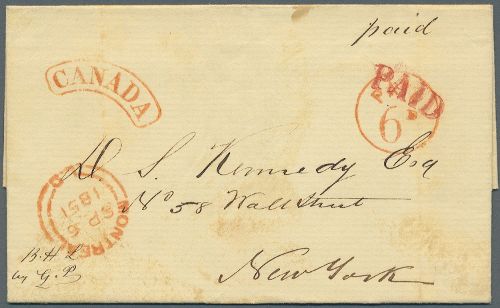 paid
CANADA
PAID
6
D. S. Kennedy Esq
No 58 Wall Street
New York
MONTREAL
SP
1851
B.H.L
by G.P